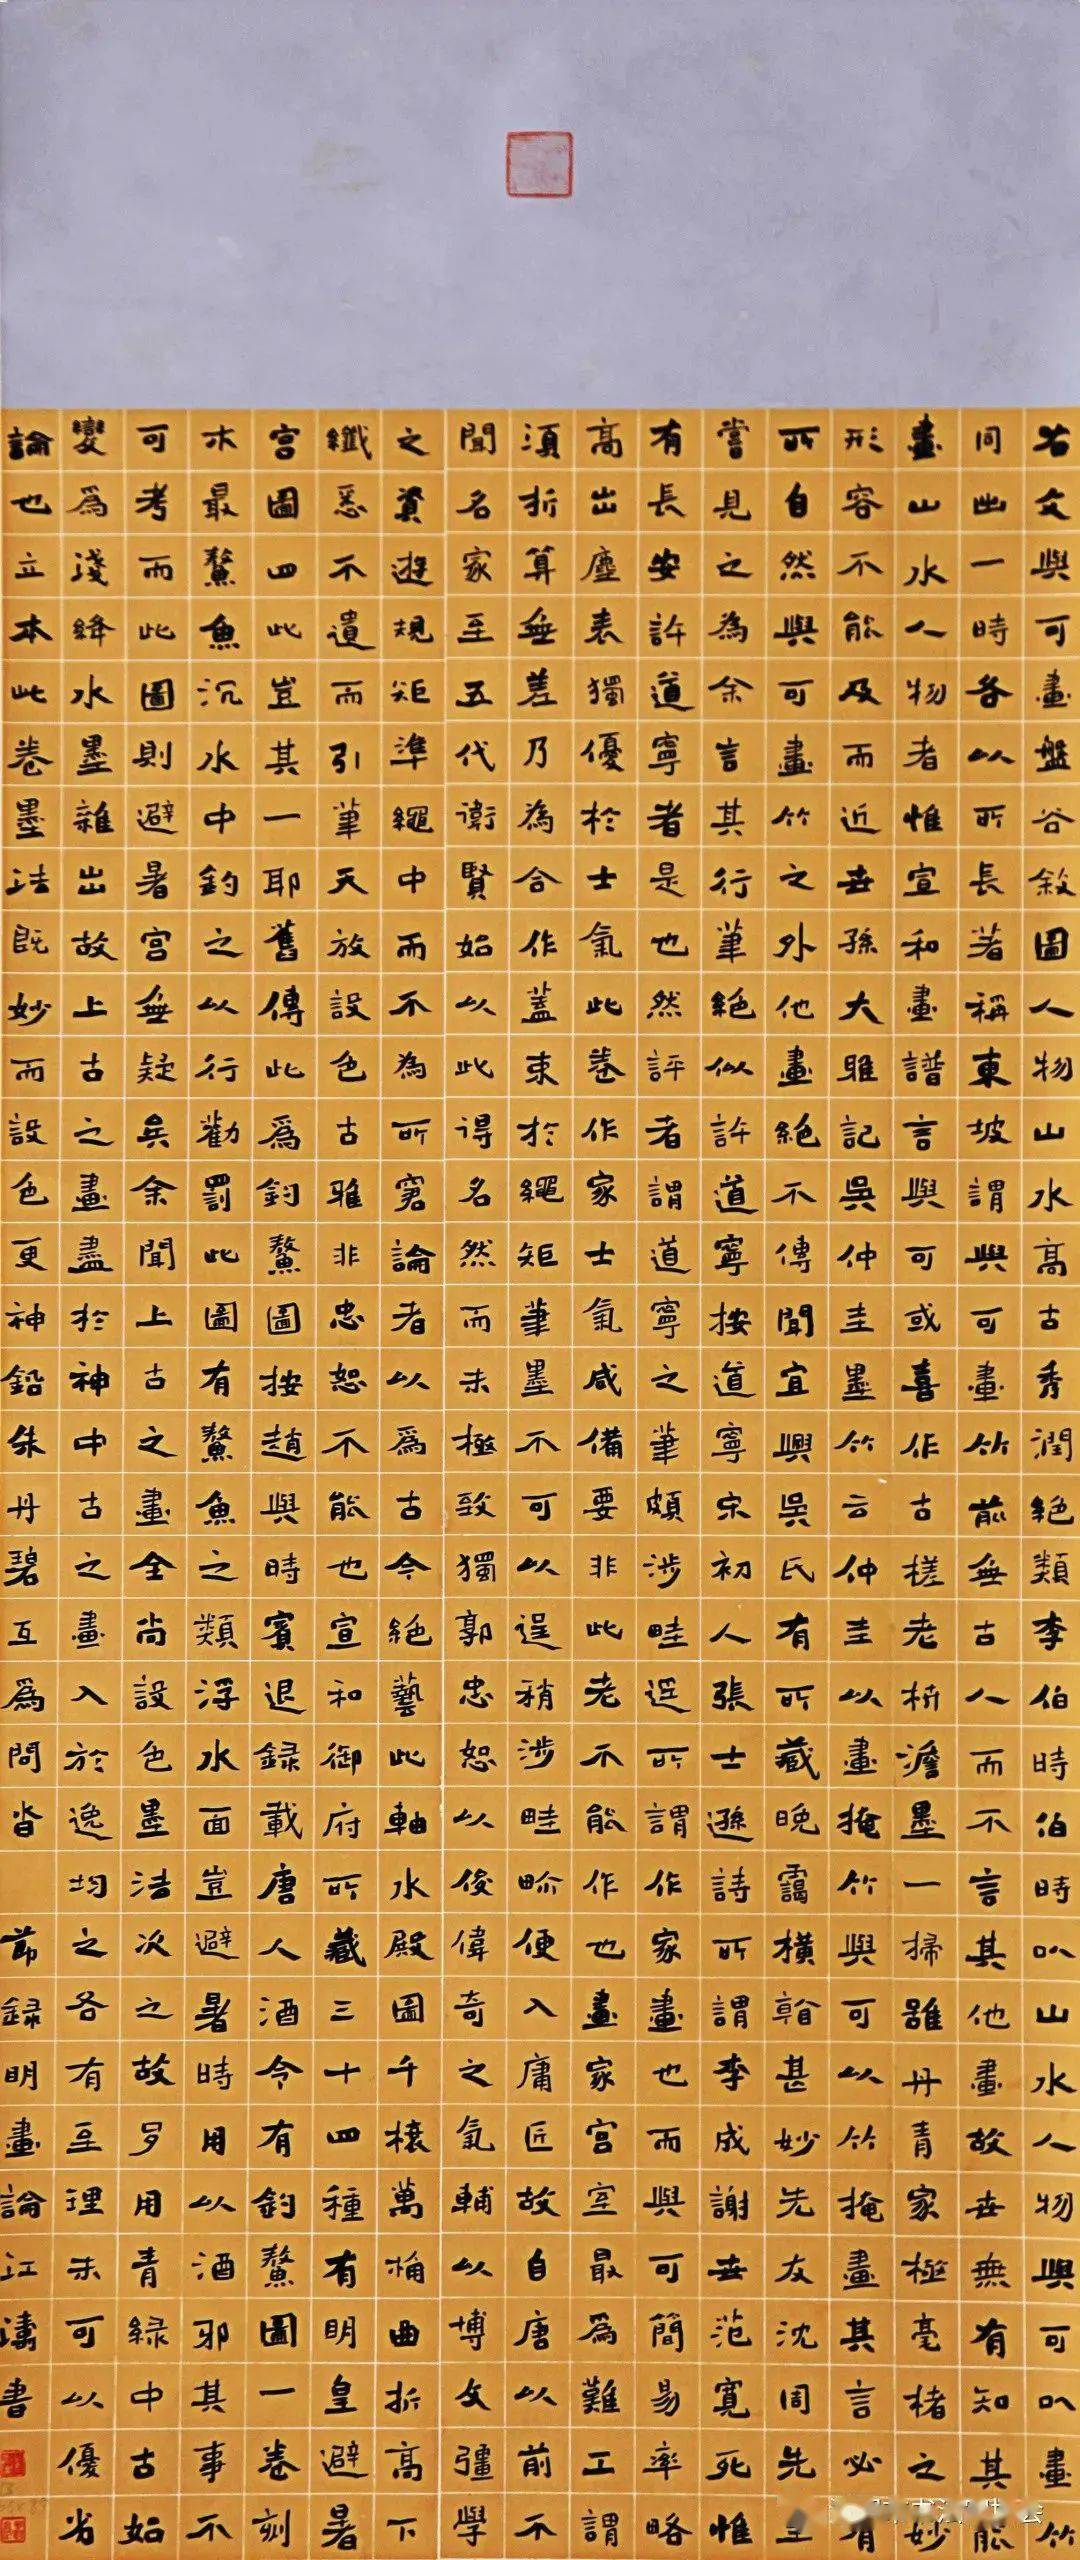 右文與可畫盤谷敘圖人物山水高古秀潤絕類李伯時伯時以山水人物與可以畫竹
同出一時各以所長著稱東坡謂與可畫竹前無古人而不言其他畫故世無有知其能
畫山水人物者惟宣和畫譜言與可或喜作古槎老枿澹墨一掃雖丹青家極毫楮之妙
形容不能及而近世孫大雅記吳仲圭墨竹云仲圭以畫掩竹與可以竹掩畫其言必有
所自然與可畫竹之外他畫絕不傳聞宜興吳氏有所藏晚靄橫翰甚妙先友沈周先生
嘗見之為余言其行筆絕似許道寧按道寧宋初人張士遜詩所謂李成謝世范寬死惟
有長安許道寧者是也然評者謂道寧之筆頗涉畦逕所謂作家畫也而與可簡易率略
高出塵表獨優於士氣此卷作家士氣咸備要非此老不能作也畫家宮室最為難工謂
須折算無差乃為合作蓋束於繩矩筆墨不可以逞稍涉畦畛便入庸匠故自唐以前不
聞名家至五代衛賢始以此得名然而未極致獨郭忠恕以俊偉奇之氣輔以博文彊學
之資遊規矩準繩中而不為所窘論者以為古今絕藝此軸水殿圖千榱萬桷曲折高下
纖悉不遺而引筆天放設色古雅非忠恕不能也宣和御府所藏三十四種有明皇避暑
宮圖四此豈其一耶舊傳此為釣鰲圖按趙與時賓退錄載唐人酒令有釣鰲圖一卷刻
木最鰲魚沉水中釣之以行勸罰此圖有鰲魚之類浮水面豈避暑時用以酒邪其事不
可考而此圖則避暑宮無疑矣余聞上古之畫全尚設色墨法次之故多用青綠中古始
變為淺絳水墨雜出故上古之畫盡於神中古之畫入於逸均之各有至理未可以優劣
論也立本此卷墨法既妙而設色更神鉛朱丹碧互為間沓 節錄明畫論江濤書